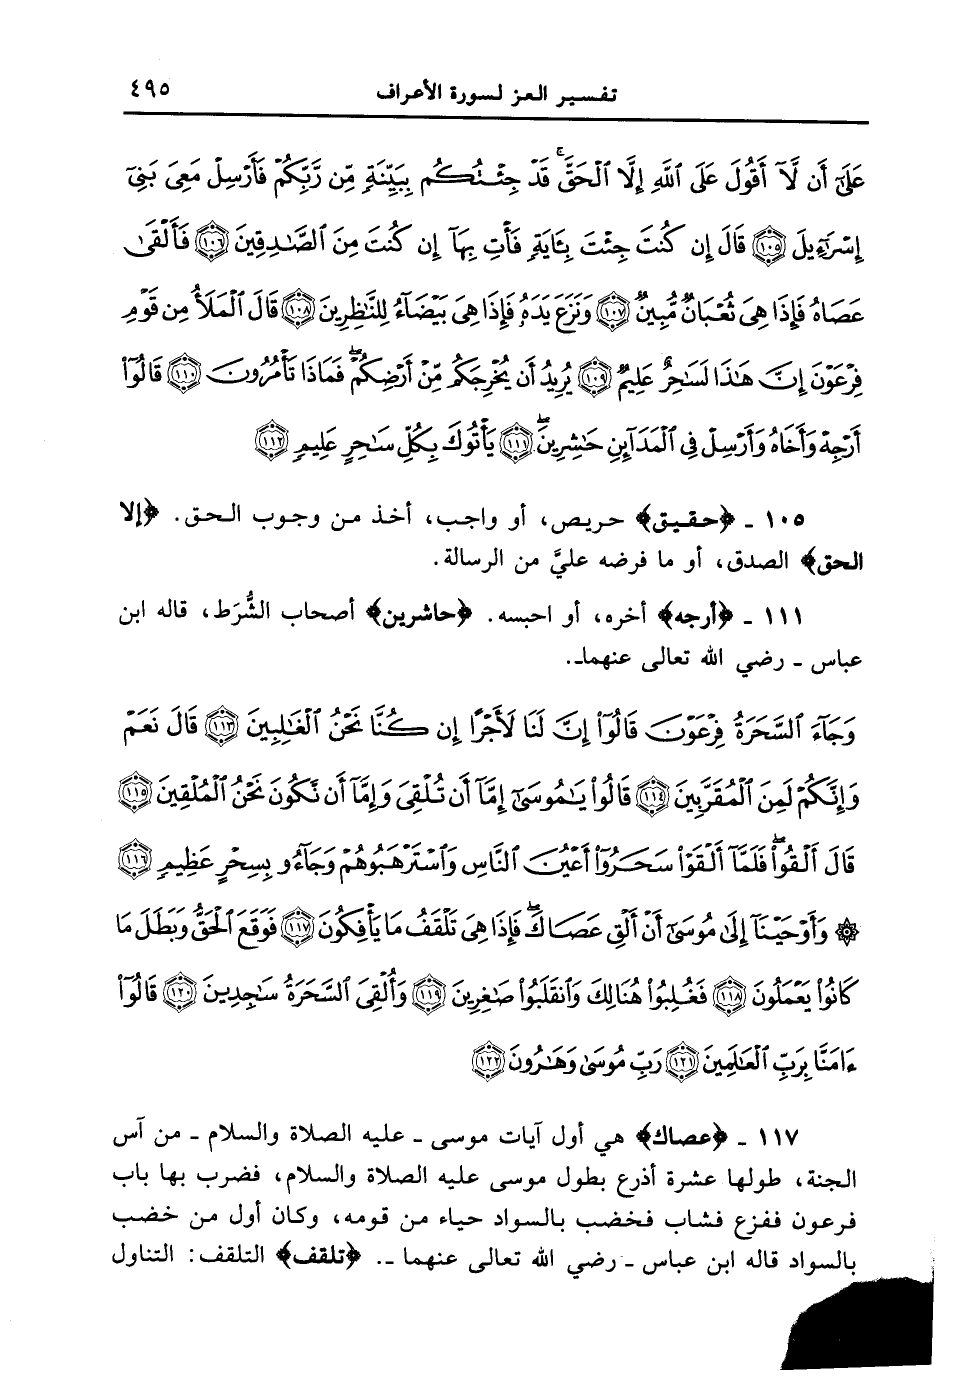 تفسير العز لسورة الأعراف ٤٩٥
عَلَىٰٓ أَن لَّآ أَقُولَ عَلَى ٱللَّهِ إِلَّا ٱلْحَقَّ ۚ قَدْ جِئْتُكُم بِبَيِّنَةٍ مِّن رَّبِّكُمْ فَأَرْسِلْ مَعِىَ بَنِىٓ
إِسْرَٰٓءِيلَ ۝١٠٥ قَالَ إِن كُنتَ جِئْتَ بِـَٔايَةٍ فَأْتِ بِهَآ إِن كُنتَ مِنَ ٱلصَّـٰدِقِينَ ۝١٠٦ فَأَلْقَىٰ
عَصَاهُ فَإِذَا هِىَ ثُعْبَانٌ مُّبِينٌ ۝١٠٧ وَنَزَعَ يَدَهُۥ فَإِذَا هِىَ بَيْضَآءُ لِلنَّـٰظِرِينَ ۝١٠٨ قَالَ ٱلْمَلَأُ مِن قَوْمِ
فِرْعَوْنَ إِنَّ هَـٰذَا لَسَـٰحِرٌ عَلِيمٌ ۝١٠٩ يُرِيدُ أَن يُخْرِجَكُم مِّنْ أَرْضِكُمْ ۖ فَمَاذَا تَأْمُرُونَ ۝١١٠ قَالُوٓا۟
أَرْجِهْ وَأَخَاهُ وَأَرْسِلْ فِى ٱلْمَدَآئِنِ حَـٰشِرِينَ ۖ ۝١١١ يَأْتُوكَ بِكُلِّ سَـٰحِرٍ عَلِيمٍ ۝١١٢
١٠٥ ـ ﴿حقيق﴾ حريص، أو واجب، أخذ من وجوب الحق. ﴿إلا
الحق﴾ الصدق، أو ما فرضه عليَّ من الرسالة.
١١١ ـ ﴿أرجه﴾ أخره، أو احبسه. ﴿حاشرين﴾ أصحاب الشُّرَط، قاله ابن
عباس ـ رضي الله تعالى عنهماـ.
وَجَآءَ ٱلسَّحَرَةُ فِرْعَوْنَ قَالُوٓا۟ إِنَّ لَنَا لَأَجْرًا إِن كُنَّا نَحْنُ ٱلْغَـٰلِبِينَ ۝١١٣ قَالَ نَعَمْ
وَإِنَّكُمْ لَمِنَ ٱلْمُقَرَّبِينَ ۝١١٤ قَالُوا۟ يَـٰمُوسَىٰٓ إِمَّآ أَن تُلْقِىَ وَإِمَّآ أَن نَّكُونَ نَحْنُ ٱلْمُلْقِينَ ۝١١٥
قَالَ أَلْقُوا۟ ۖ فَلَمَّآ أَلْقَوْا۟ سَحَرُوٓا۟ أَعْيُنَ ٱلنَّاسِ وَٱسْتَرْهَبُوهُمْ وَجَآءُو بِسِحْرٍ عَظِيمٍ ۝١١٦
۞ وَأَوْحَيْنَآ إِلَىٰ مُوسَىٰٓ أَنْ أَلْقِ عَصَاكَ ۖ فَإِذَا هِىَ تَلْقَفُ مَا يَأْفِكُونَ ۝١١٧ فَوَقَعَ ٱلْحَقُّ وَبَطَلَ مَا
كَانُوا۟ يَعْمَلُونَ ۝١١٨ فَغُلِبُوا۟ هُنَالِكَ وَٱنقَلَبُوا۟ صَـٰغِرِينَ ۝١١٩ وَأُلْقِىَ ٱلسَّحَرَةُ سَـٰجِدِينَ ۝١٢٠ قَالُوٓا۟
ءَامَنَّا بِرَبِّ ٱلْعَـٰلَمِينَ ۝١٢١ رَبِّ مُوسَىٰ وَهَـٰرُونَ ۝١٢٢
١١٧ ـ ﴿عصاك﴾ هي أول آيات موسى ـ عليه الصلاة والسلام ـ من آس
الجنة، طولها عشرة أذرع بطول موسى عليه الصلاة والسلام، فضرب بها باب
فرعون ففزع فشاب فخضب بالسواد حياء من قومه، وكان أول من خضب
بالسواد قاله ابن عباس ـ رضي الله تعالى عنهما ـ. ﴿تلقف﴾ التلقف: التناول